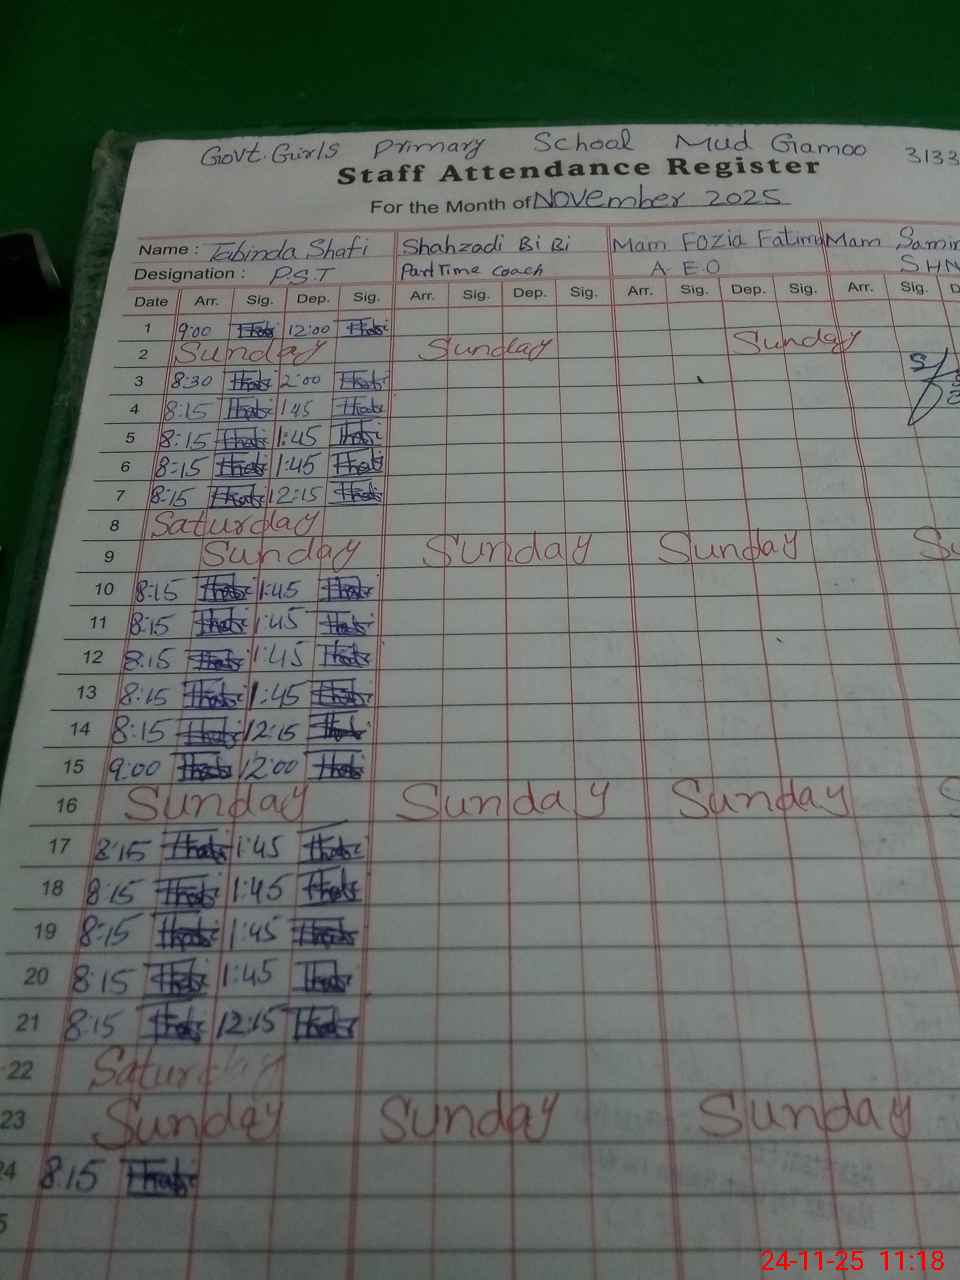 Govt. Girls Primary School Mud Gamoo 3133
Staff Attendance Register
For the Month of November 2025
Name : Tabinda Shafi Shahzadi Bi Bi Mam Fozia Fatima Mam
Designation : P.S.T Part Time Coach A.E.O SHN
Date Arr. Sig. Dep. Sig. Arr. Sig. Dep. Sig. Arr. Sig. Dep. Sig. Arr. Sig.
1 9:00 12:00
2 Sunday Sunday Sunday
3 8:30 2:00
4 8:15 1:45
5 8:15 1:45
6 8:15 1:45
7 8:15 12:15
8 Saturday
9 Sunday Sunday Sunday
10 8:15 1:45
11 8:15 1:45
12 8:15 1:45
13 8:15 1:45
14 8:15 12:15
15 9:00 12:00
16 Sunday Sunday Sunday
17 8:15 1:45
18 8:15 1:45
19 8:15 1:45
20 8:15 1:45
21 8:15 12:15
22 Saturday
23 Sunday Sunday Sunday
24 8:15
24-11-25 11:18